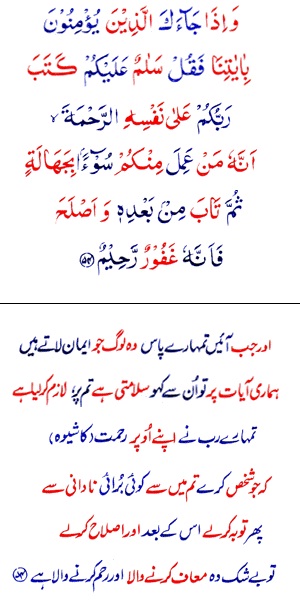 وَاِذَا جَآءَكَ الَّذِيْنَ يُؤْمِنُوْنَ
بِاٰيٰتِنَا فَقُلْ سَلٰمٌ عَلَيْكُمْ كَتَبَ
رَبُّكُمْ عَلٰى نَفْسِهِ الرَّحْمَةَ ۙ
اَنَّهٗ مَنْ عَمِلَ مِنْكُمْ سُوْٓءًۢا بِجَهَالَةٍ
ثُمَّ تَابَ مِنْۢ بَعْدِهٖ وَاَصْلَحَ
فَاَنَّهٗ غَفُوْرٌ رَّحِيْمٌ ﴿۵۴﴾
اور جب آئیں تمہارے پاس وہ لوگ جو ایمان لاتے ہیں
ہماری آیات پر تو اُن سے کہو سلامتی ہے تم پر، لازم کرلیا ہے
تمہارے رب نے اپنے اُوپر رحمت (کا شیوہ)
کہ جو شخص کرے تم میں سے کوئی بُرائی نادانی سے
پھر توبہ کرلے اس کے بعد اور اصلاح کرلے
تو بے شک وہ معاف کرنے والا اور رحم کرنے والا ہے ﴿۵۴﴾